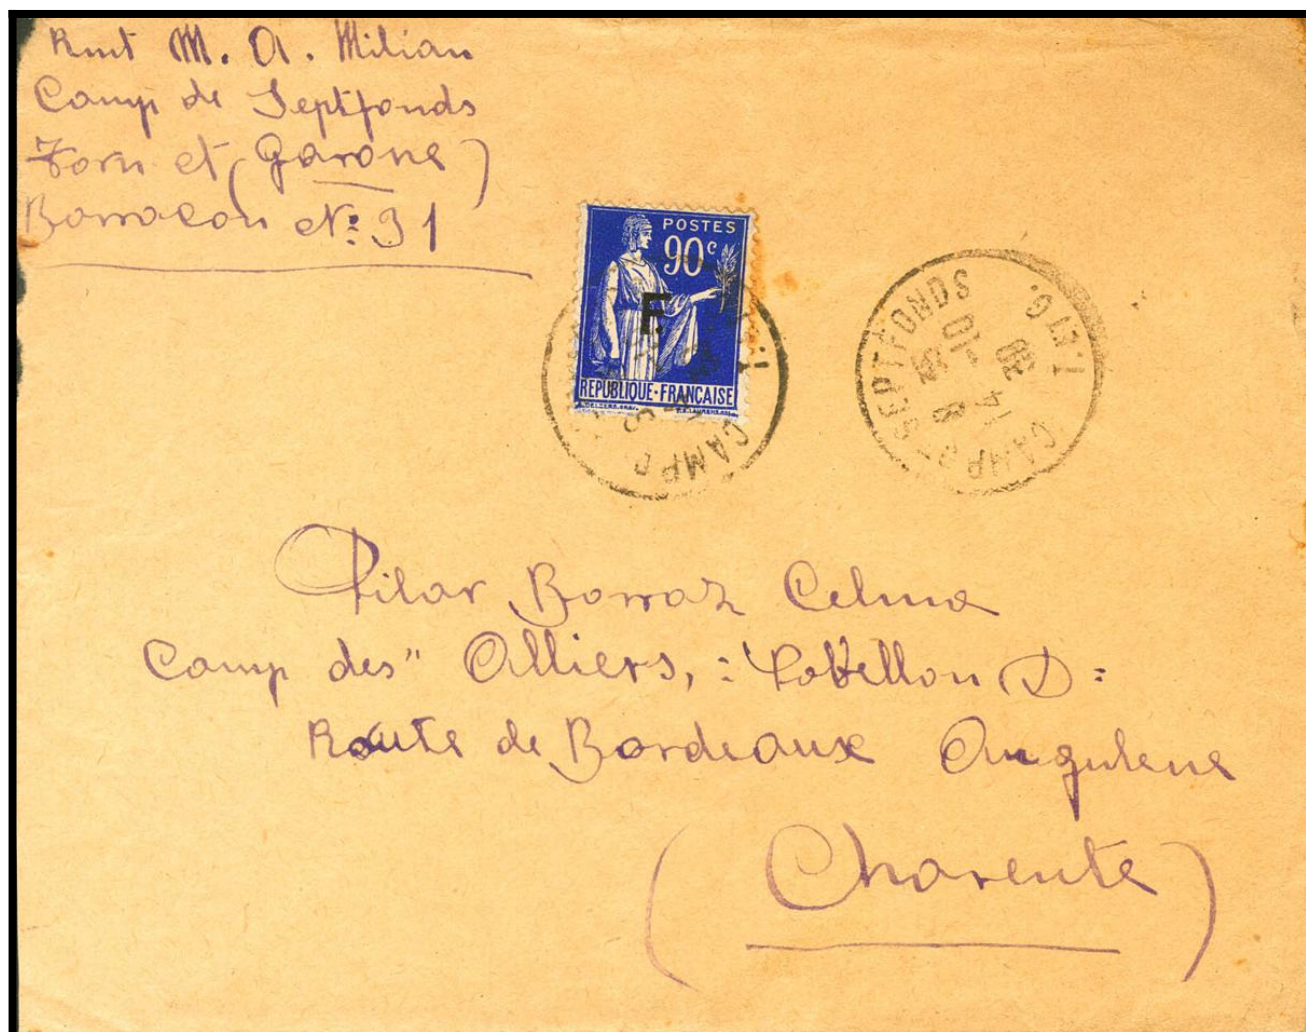 Rmt M. A. Milian
Camp de Septfonds
Torn et (Garone)
Barracon Nº: 31
POSTES
90c
F.
REPUBLIQUE·FRANÇAISE
CAMP D
CAMP DE SEPTFONDS
T. ET G.
14 30
10
8
Pilar Borraz Celma
Camp des" Alliers, : Pabellon D:
Route de Bordeaux Angulene
(Charente)